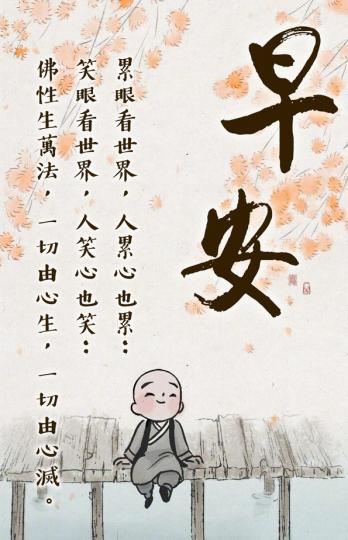 早安
累眼看世界，人累心也累：
笑眼看世界，人笑心也笑：
佛性生萬法，一切由心生，一切由心滅。